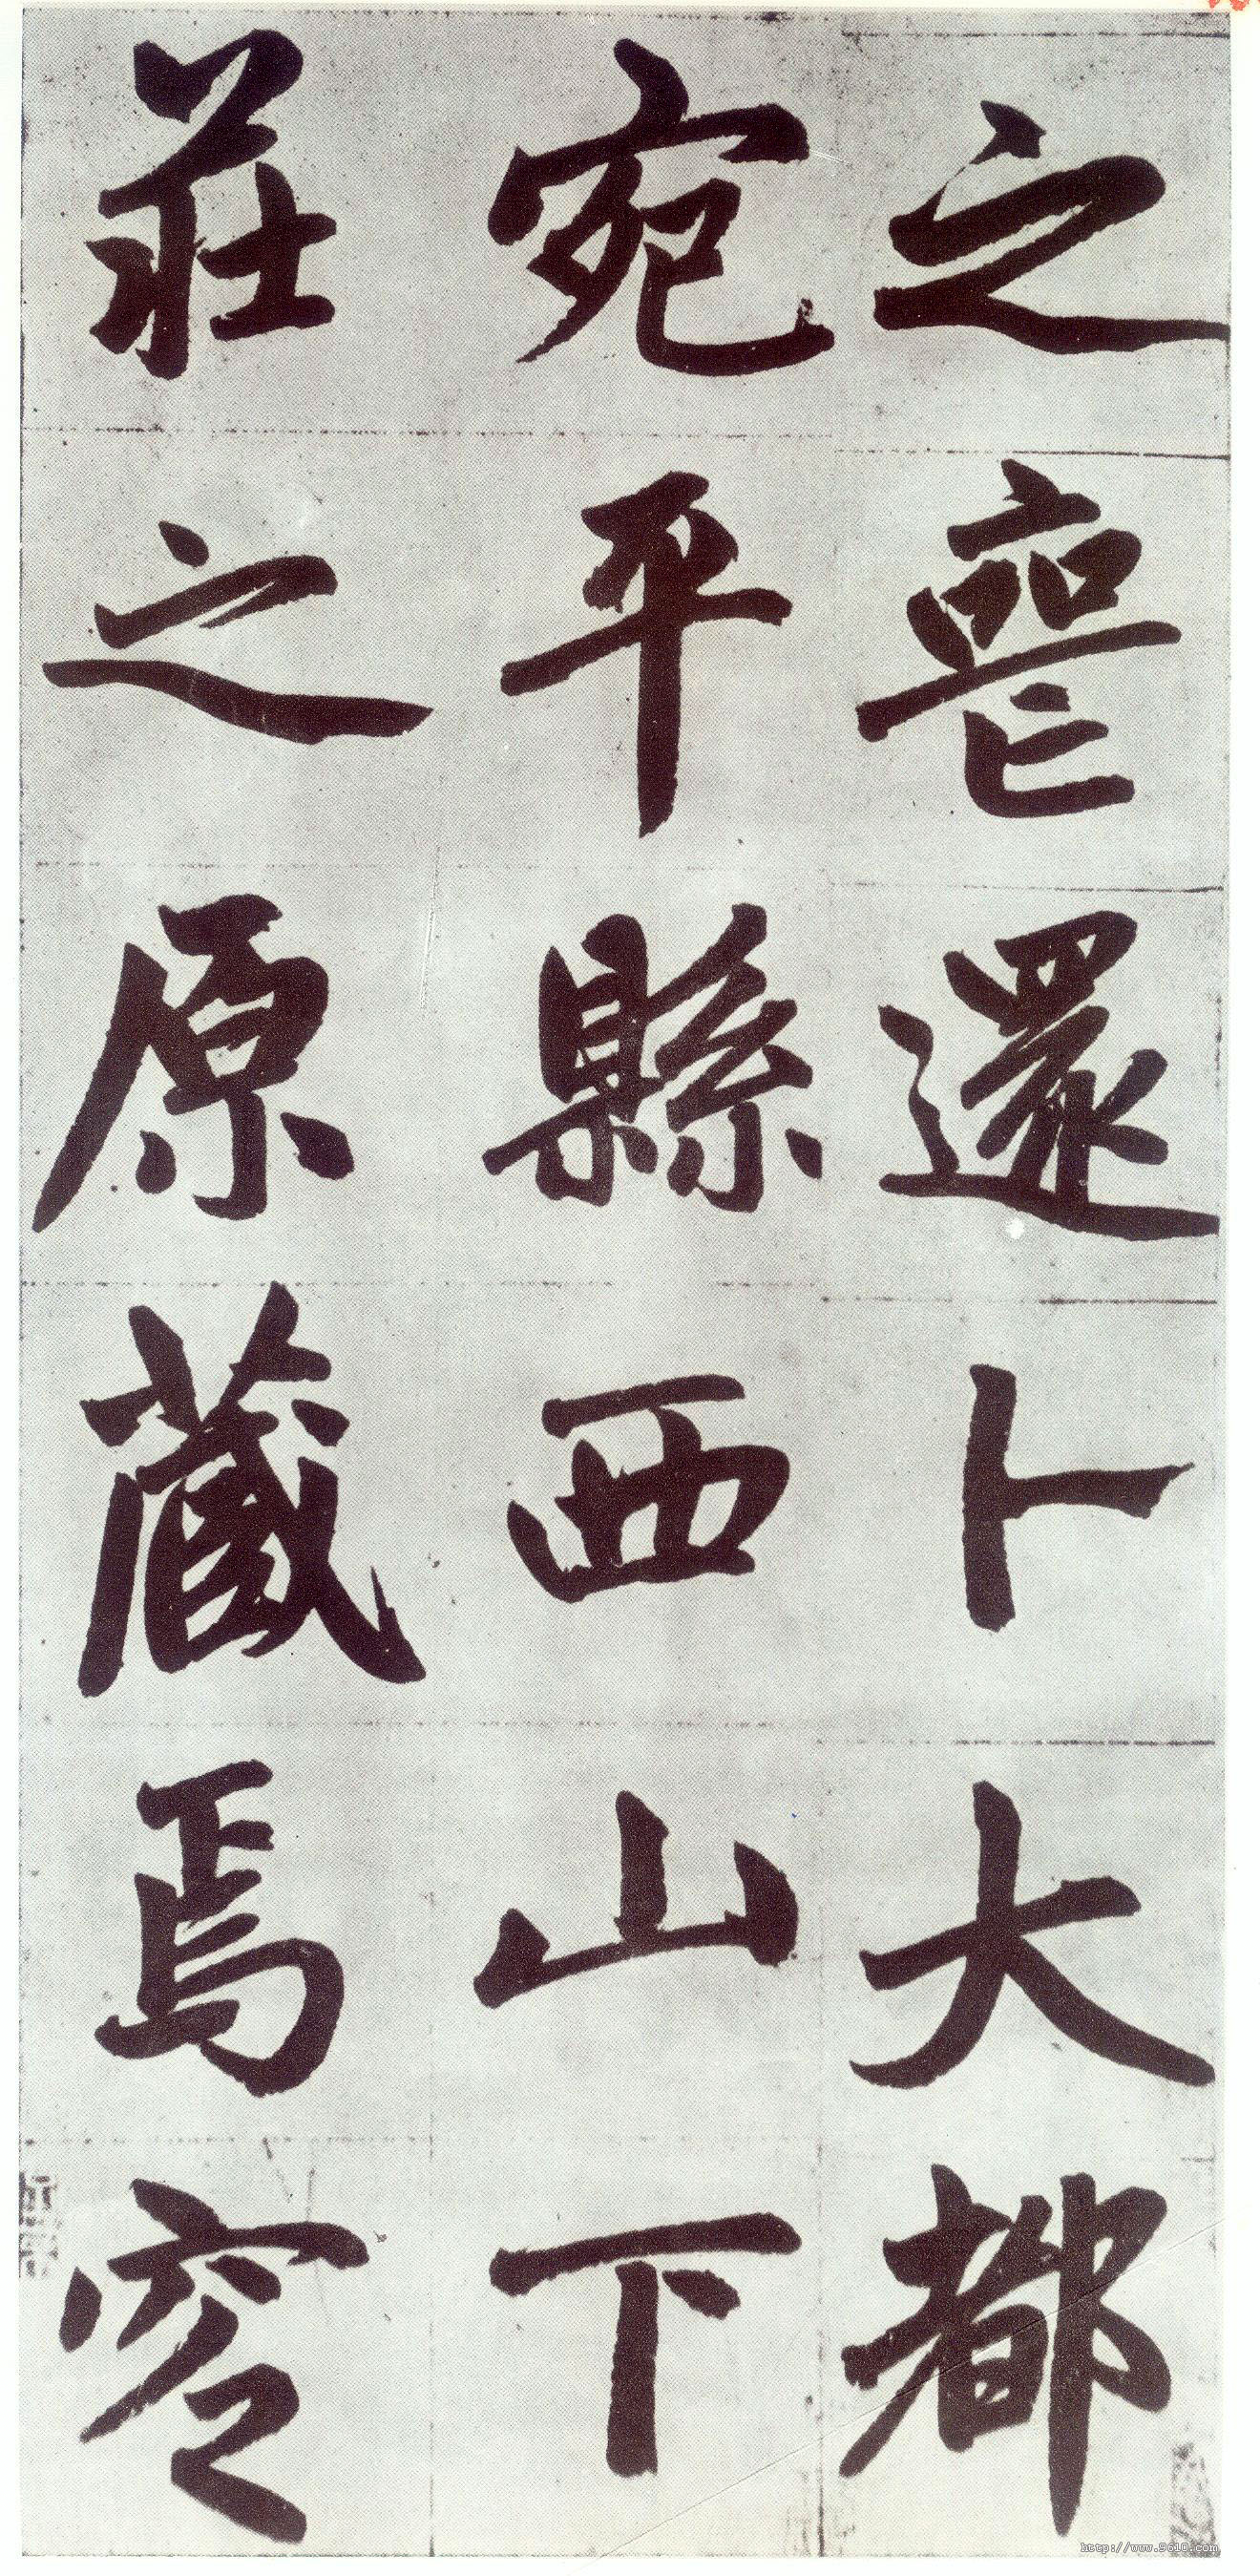 之喪還卜大都
宛平縣西山下
莊之原藏焉窆
http://www.9610.com